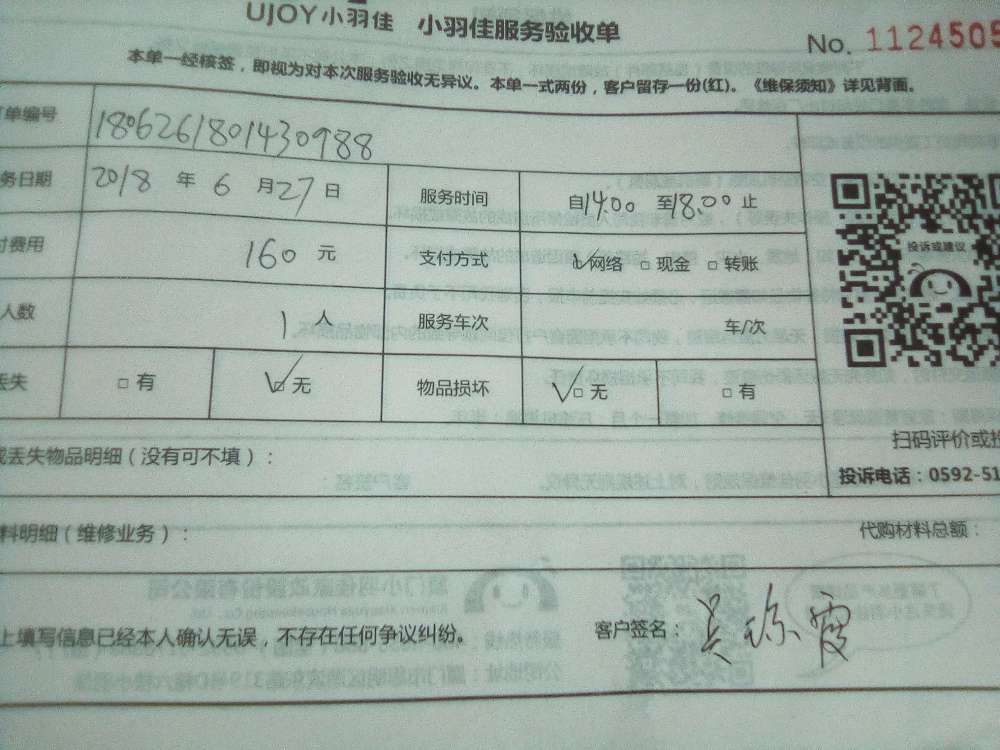 UJOY小羽佳 小羽佳服务验收单
No. 1124505
本单一经核签，即视为对本次服务验收无异议。本单一式两份，客户留存一份(红)。《维保须知》详见背面。
单编号 180626180143098​8
务日期 2018 年 6 月 27 日 服务时间 自1400 至18.00 止
付费用 160 元 支付方式 网络 现金 转账
人数 1 人 服务车次 车/次
丢失 有 无 物品损坏 无 有
投诉或建议
扫码评价或投
投诉电话：0592-51
或丢失物品明细（没有可不填）：
料明细（维修业务）： 代购材料总额：
上填写信息已经本人确认无误，不存在任何争议纠纷。 客户签名：吴琼霞